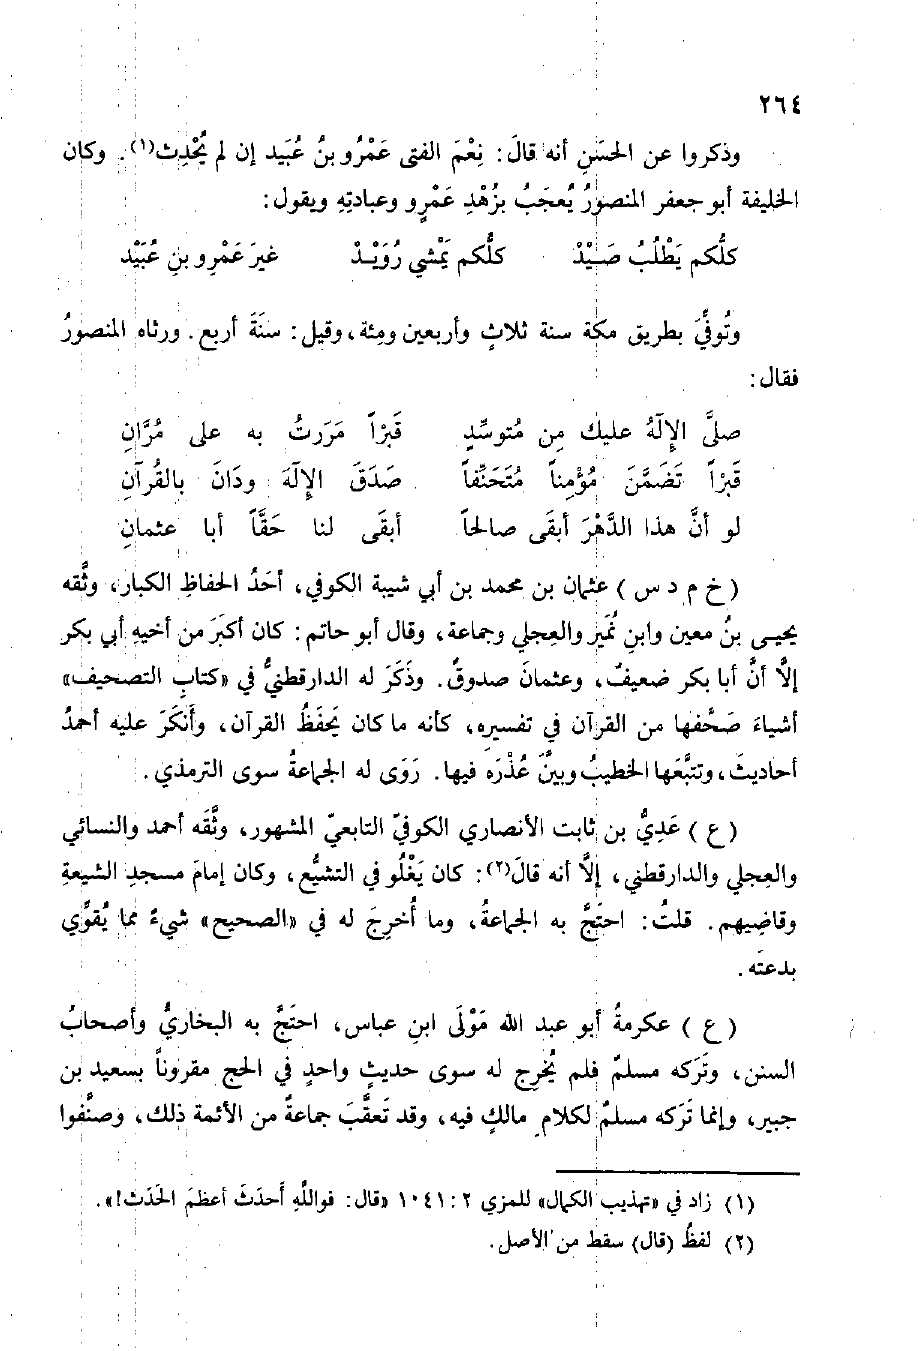 ٢٦٤
وذكروا عن الحسَنِ أنه قالَ: نِعْمَ الفتى عَمْرُو بنُ عُبَيد إن لم يُحْدِث(١). وكان
الخليفة أبو جعفر المنصورُ يُعجَبُ بزُهْدِ عَمْرٍو وعبادتِهِ ويقول:
كلُّكم يَطْلُبُ صَـيْدْ كلُّكم يَمْشي رُوَيْـدْ غيرَ عَمْرِو بنِ عُبَيْد
وتُوفِّيَ بطريق مكة سنة ثلاثٍ وأربعين ومِئة، وقيل: سنَةَ أربع. ورثاه المنصورُ
فقال:
صلَّى الإِلَهُ عليك مِن مُتوسِّدٍ قَبْراً مَرَرتُ به على مُرَّانِ
قَبْراً تَضَمَّنَ مُؤْمِناً مُتَحَنِّفاً صَدَقَ الإِلَهَ ودَانَ بالقُرآنِ
لو أنَّ هذا الدَّهْرَ أبقَى صالحاً أبقَى لنا حَقَّاً أبا عثمانِ
(خ م د س) عثمان بن محمد بن أبي شيبة الكوفي، أحَدُ الحفاظِ الكبار، وثَّقه
يحيـى بنُ معين وابنِ نُمَير والعِجلي وجماعة، وقال أبو حاتم: كان أكبَرَ من أخيهِ أبي بكر
إلَّا أنَّ أبا بكر ضعيفٌ، وعثمانَ صدوقٌ. وذَكَرَ له الدارقطنيُّ في «كتابِ التصحيف»
أشياءَ صَحَّفها من القرآن في تفسيره، كأنه ما كان يَحفَظُ القرآن، وأَنكَرَ عليه أحمدُ
أحاديثَ، وتتبَّعَها الخطيبُ وبيَّنَ عُذْرَه فيها. رَوَى له الجماعةُ سوى الترمذي.
(ع) عَدِيُّ بن ثابت الأنصاري الكوفيّ التابعيّ المشهور، وثَّقَه أحمد والنسائي
والعِجلي والدارقطني، إلَّا أنه قالَ(٢): كان يَغْلُو في التشيُّع، وكان إمامَ مسجدِ الشيعةِ
وقاضِيهم. قلتُ: احتَجَّ به الجماعةُ، وما أُخرِجَ له في «الصحيح» شيءٌ مما يُقوِّي
بدعتَه.
(ع) عكرمةُ أبو عبد الله مَوْلَى ابنِ عباس، احتَجَّ به البخاريُّ وأصحابُ
السنن، وتَرَكه مسلمٌ فلم يُخرِج له سوى حديثٍ واحدٍ في الحج مقروناً بسعيد بن
جبير، وإنما تَرَكه مسلمٌ لكلامِ مالكٍ فيه، وقد تَعقَّبَ جماعةٌ من الأئمة ذلك، وصنَّفوا
(١) زاد في «تهذيب الكمال» للمزي ٢ : ١٠٤١ «قال: فواللَّهِ أحدَثَ أعظمَ الحَدَث!».
(٢) لفظُ (قال) سقط من الأصل.